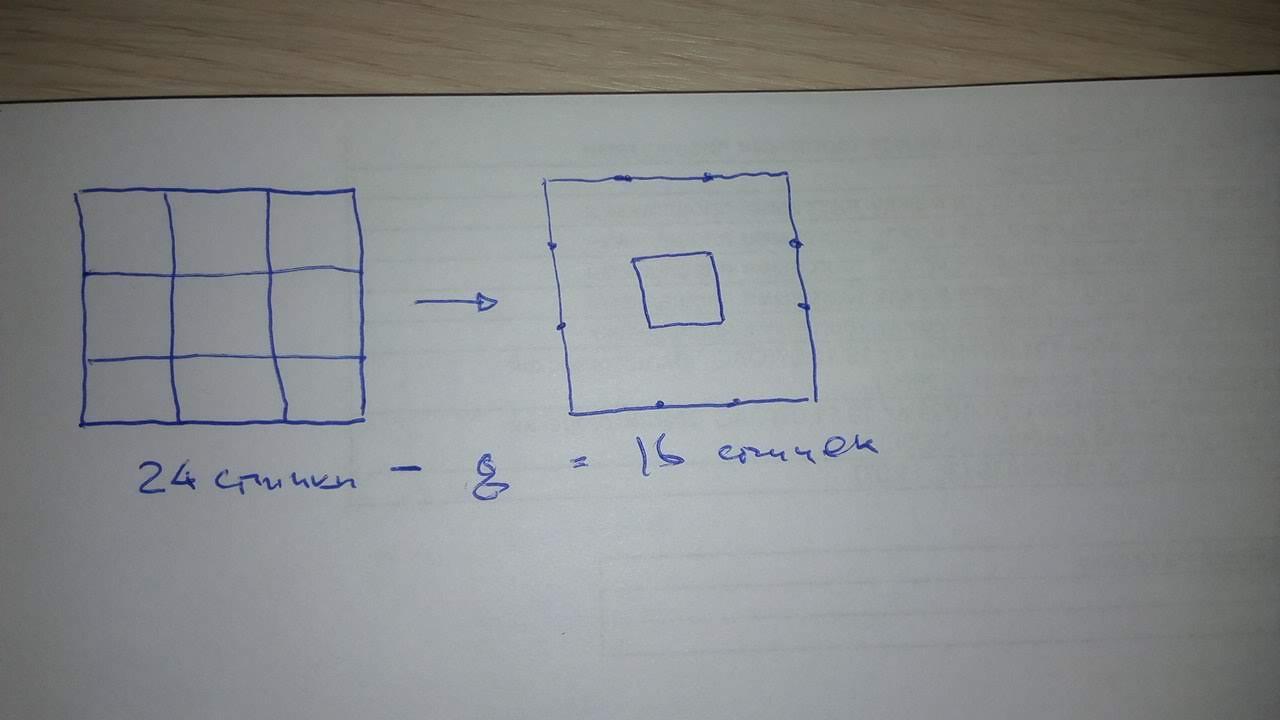 24 спички - 8 = 16 спичек